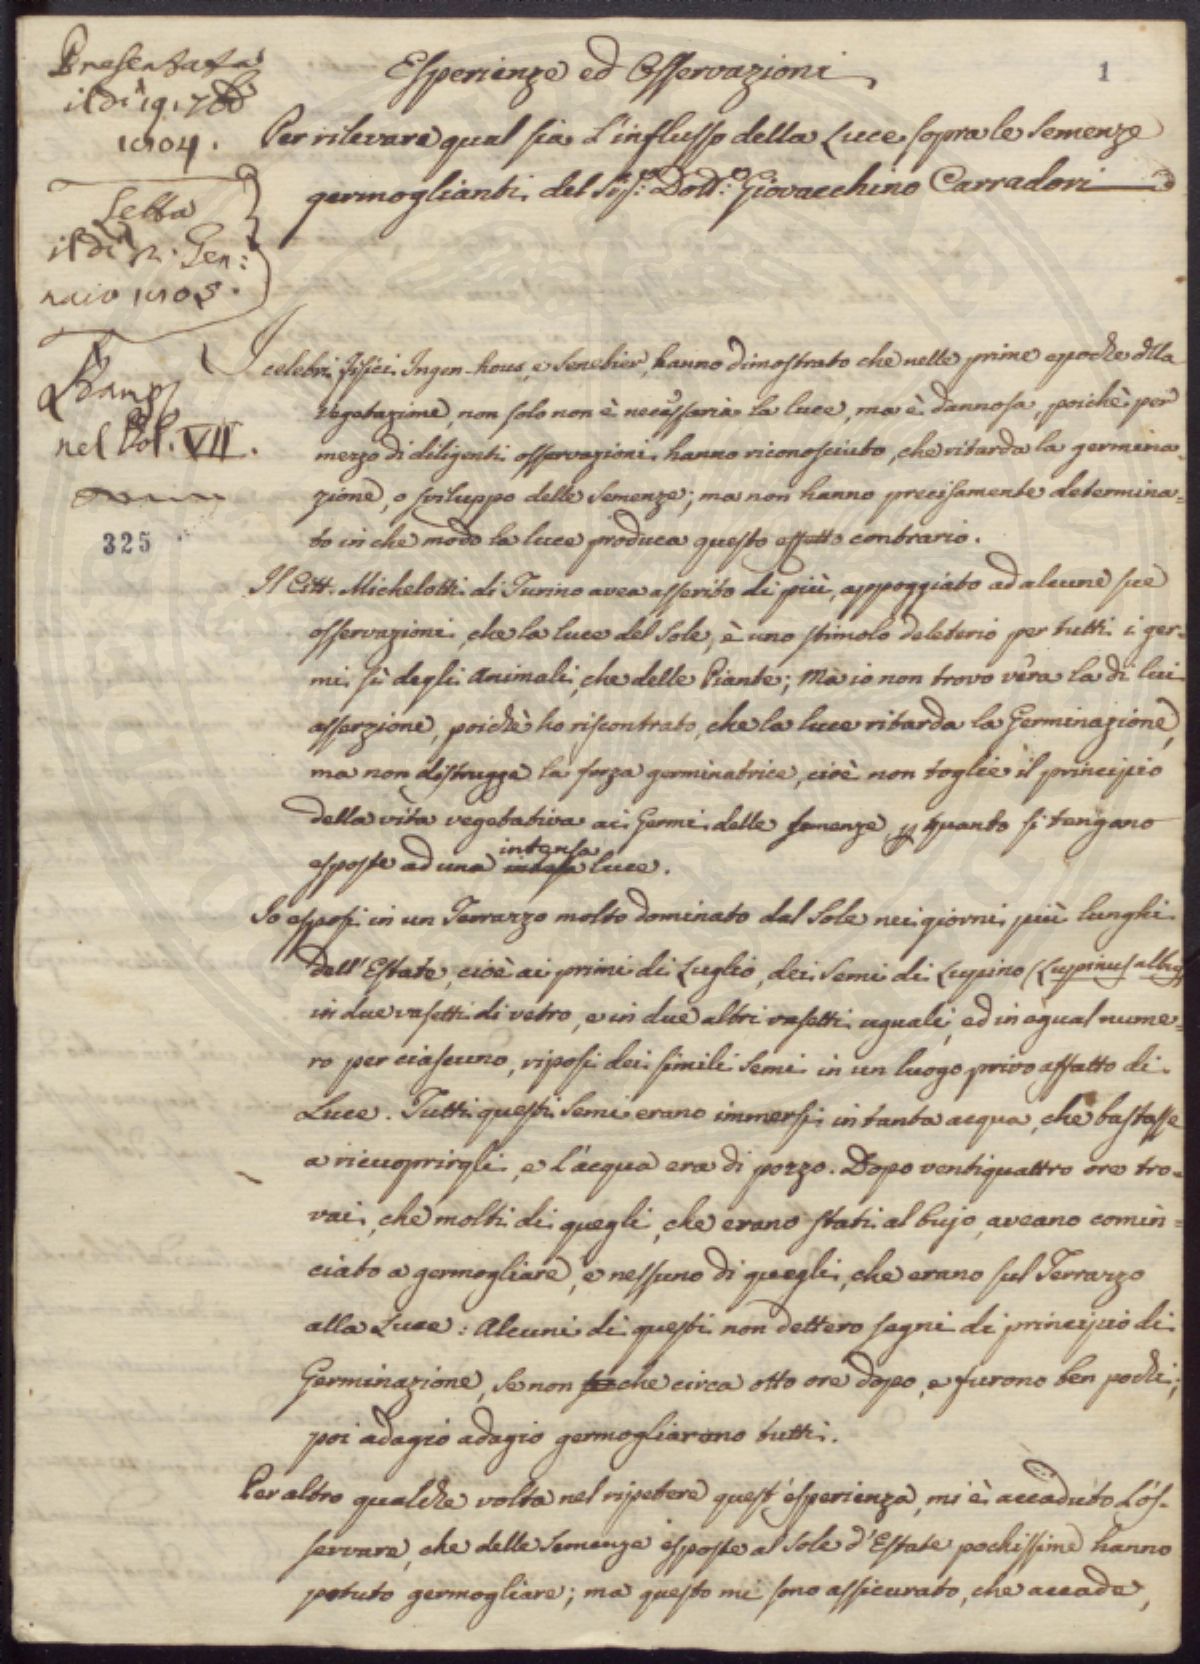 Presentata
il dì 19. 7bre
1804.
Letta
il dì 12. Gen:
naio 1805.
Stamp.
nel Vol. VII.
325
1
Esperienze ed Osservazioni
Per rilevare qual sia l'influsso della Luce sopra le Semenze
germoglianti del Sig.r Dott.r Giovacchino Carradori
I celebri Fisici Ingen-hous, e Senebier, hanno dimostrato che nelle prime epoche della
vegetazione, non solo non è necessaria la luce, ma è dannosa, poichè per
mezzo di diligenti osservazioni hanno riconosciuto, che ritarda la germina=
zione, o sviluppo delle Semenze; ma non hanno precisamente determina=
to in che modo la luce produca questo effetto contrario.
Il Citt. Michelotti di Turino avea asserito di più, appoggiato ad alcune sue
osservazioni, che la luce del Sole, è uno stimolo deleterio per tutti i ger=
mi sì degli Animali, che delle Piante; Ma io non trovo vera la di lui
asserzione, poichè ho riscontrato, che la luce ritarda la Germinazione,
ma non distrugge la forza germinatrice, cioè non toglie il principio
della vita vegetativa ai Germi delle semenze, p quanto si tengano
esposte ad una intensa luce.
Io esposi in un Terrazzo molto dominato dal Sole nei giorni più lunghi
dell'Estate, cioè ai primi di Luglio, dei Semi di Lupino (Lupinus albus)
in due vasetti di vetro, e in due altri vasetti uguali, ed in egual nume=
ro per ciascuno, riposi dei simili Semi in un luogo privo affatto di
Luce. Tutti questi Semi erano immersi in tanta acqua, che bastasse
a ricuoprirgli, e l'acqua era di pozzo. Dopo ventiquattro ore tro=
vai, che molti di quegli, che erano stati al bujo, aveano comin=
ciato a germogliare, e nessuno di quegli, che erano sul Terrazzo
alla Luce: Alcuni di questi non dettero segni di principio di
Germinazione, se non che circa otto ore dopo, e furono ben pochi;
poi adagio adagio germogliarono tutti.
Per altro qualche volta nel ripetere quest'esperienza, mi è accaduto d'os=
servare, che delle Semenze esposte al Sole d'Estate pochissime hanno
potuto germogliare; ma questo mi sono assicurato, che accade,